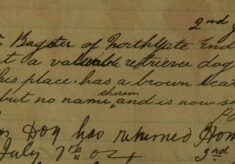 2nd
Bagster of Northgate End
t a valuable retrieve dog
his place, has a brown leat
thereon
but no name, and is now s
Dog has returned Hom
July 7th 04 3rd